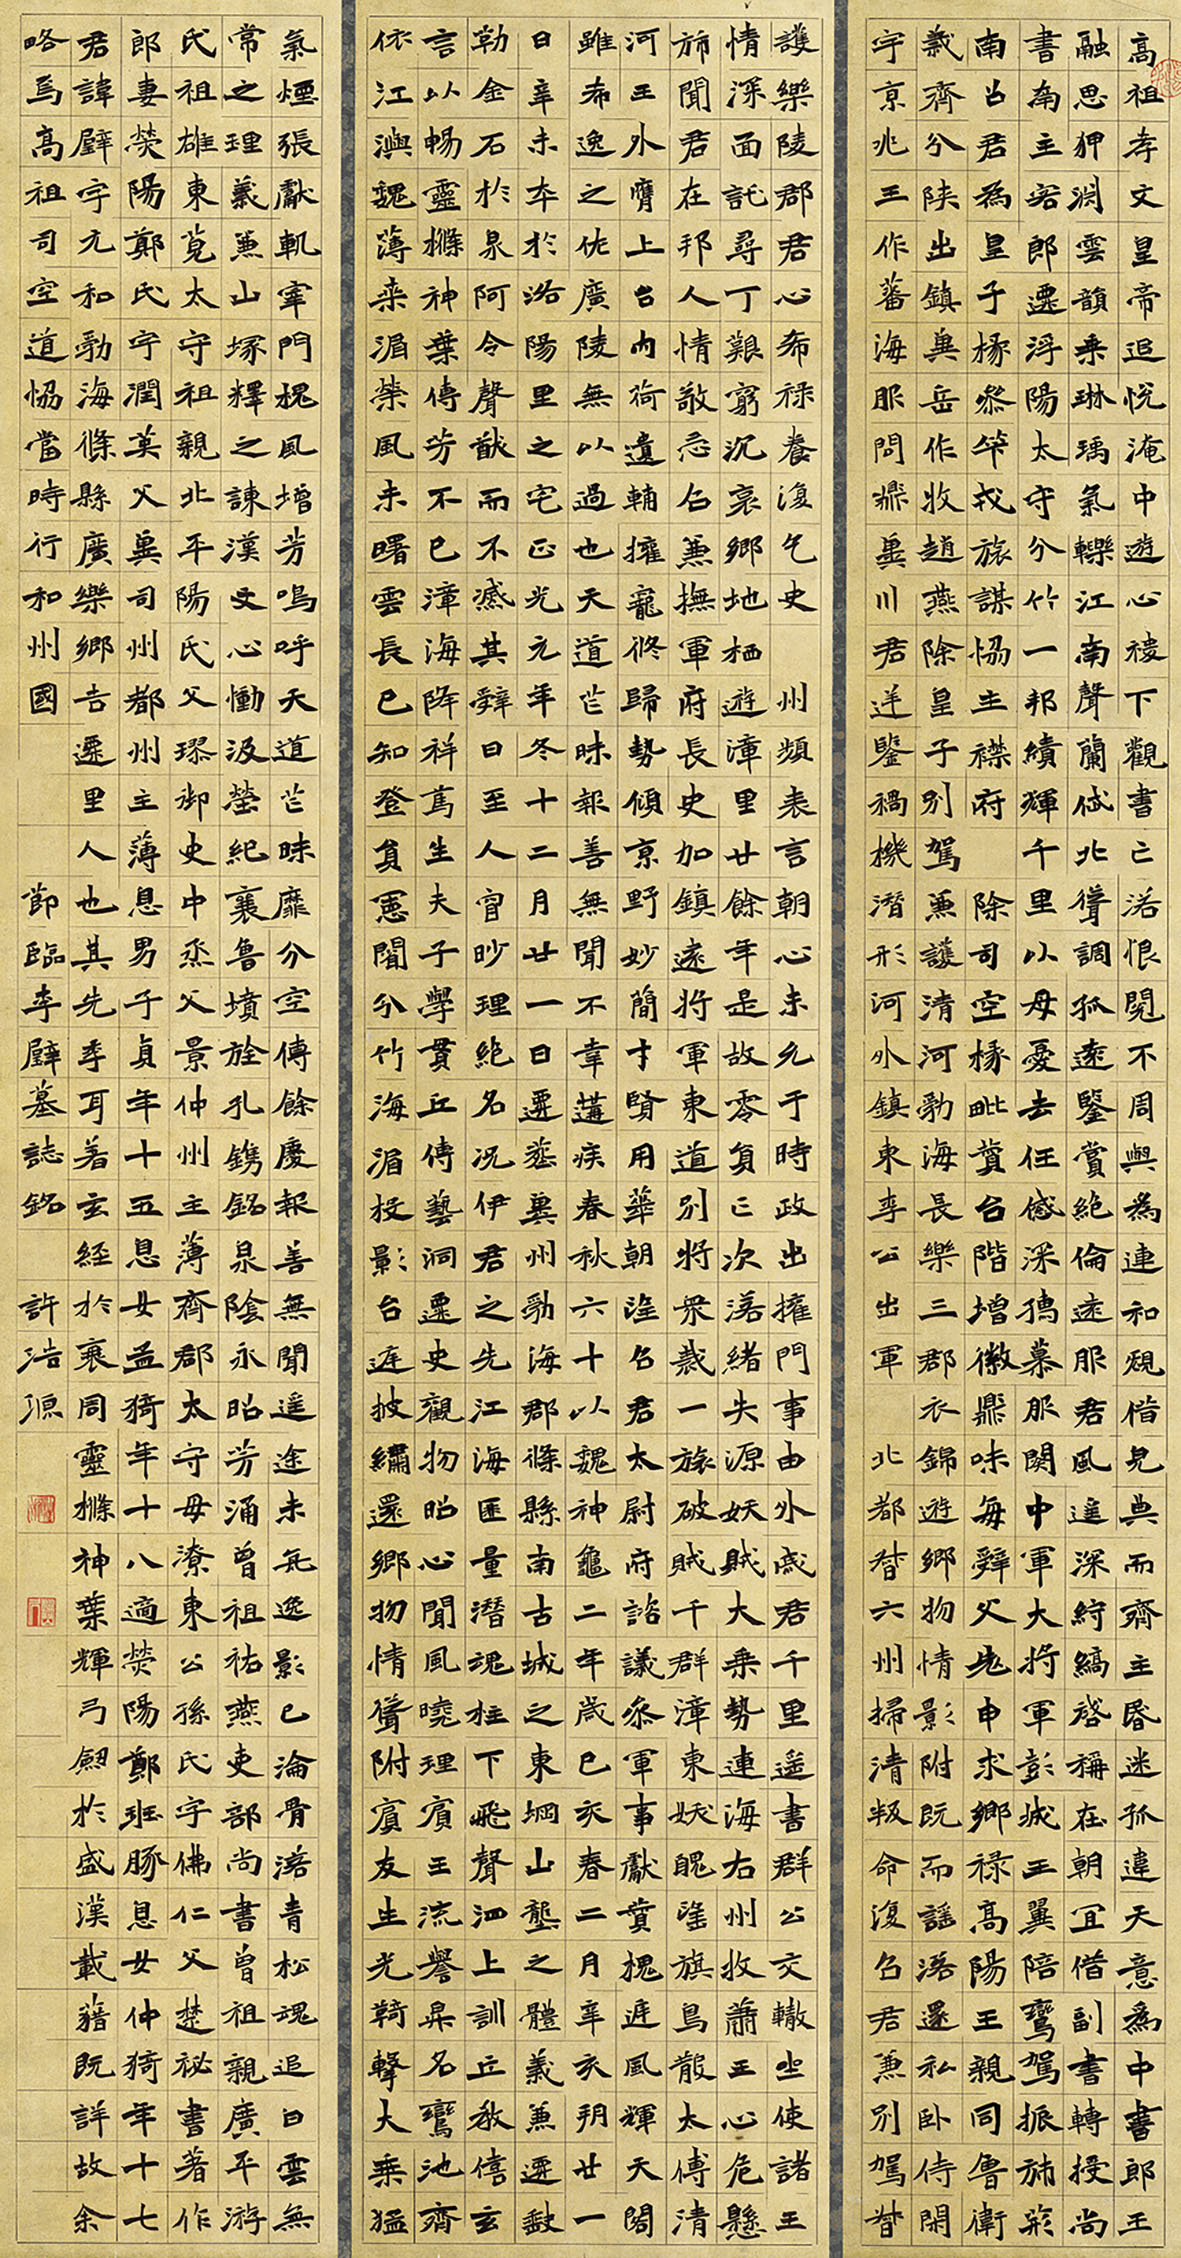 高祖孝文皇帝追悅淹中遊心稷下觀書亡落恨閱不周與為連和規借見典而齊主昏迷孤違天意為中書郎王
融思狎淵雲韻乘琳瑀氣轢江南聲蘭岱北聳調孤遠鑒賞絕倫遠服君風遙深紵縞啓稱在朝宜借副書轉授尚
書南主客郎遷浮陽太守分竹一邦績輝千里以母憂去任感深孺慕服闋中軍大將軍彭城王翼陪鸞駕振旆荊
南召君為皇子掾參筭戎旅謀協主襟府除司空掾毗贊台階增徽鼎味每辭父老申求鄉祿高陽王親同魯衛
義齊分陝出鎮冀岳作牧趙燕除皇子別駕兼護清河勃海長樂三郡衣錦遊鄉物情影附既而謡落還私卧侍閑
宇京兆王作蕃海服問鼎冀川君逆鑒禍機潛形河外鎮東李公出軍北都督六州掃清叛命復召君兼別駕督
護樂陵郡君心希祿養復乞史州頻表言朝心未允于時政出擁門事由外戚君千里遥書群公交轍坐使諸王
情深面託尋丁艱窮沉哀鄉地栖遊漳里廿餘年是故零負亡次落緒失源妖賊大乘勢連海右州牧蕭王心危懸
旆聞君在邦人情敬忌召兼撫軍府長史加鎮遠將軍東道別將衆裁一旅破賊千群漳東妖醜望旗鳥散太傅清
河王外膺上台內荷遺輔擁寵修歸勢傾京野妙簡才賢用華朝望召君太尉府諮議參軍事獻贊槐遲風輝天閣
雖希逸之佐廣陵無以過也天道芒昧報善無聞不幸遘疾春秋六十以魏神龜二年歲巳亥春二月辛亥朔廿一
日辛未卒於洛陽里之宅正光元年冬十二月廿一日遷葬冀州勃海郡條縣南古城之東堈山壟之體義兼遷皷
勒金石於泉阿令聲猷而不滅其辭曰至人冐眇理絕名況伊君之先江海匪量潛魂柱下飛聲泗上訓丘教僖玄
言以暢靈樤神葉傳芳不已漳海降祥萬生夫子學貫丘傳藝洞遷史觀物昭心聞風曉理賓王流譽昇名鸞池齊
依江澳魏薄棻湄榮風未曙雲長已知登負憲闈分竹海湄投影台庭披繡還鄉物情聳附賓友生光輢輕大乘猛
氣煙張獻軌宰門槐風增芳嗚呼天道芒昧靡分空傳餘慶報善無聞遥途未究逸影已淪骨落青松魂追白雲無
常之理義兼山塚釋之諫漢文心慟汲塋紀襄魯墳旌孔鐫銘泉陰永昭芳涌曾祖祐燕吏部尚書曾祖親廣平游
氏祖雄東莞太守祖親北平陽氏父璆御史中烝父景仲州主薄齊郡太守母潦東公孫氏字佛仁父楚祕書著作
郎妻滎陽鄭氏字潤英父冀司州都州主薄息男子貞年十五息女孟猗年十八適滎陽鄭班豚息女仲猗年十七
君諱璧字元和勃海條縣廣樂鄉吉遷里人也其先李耳著玄經於衰周靈樤神葉輝弓劔於盛漢載籍既詳故余
略焉高祖司空道協當時行和州國 節臨李璧墓誌銘 許浩源